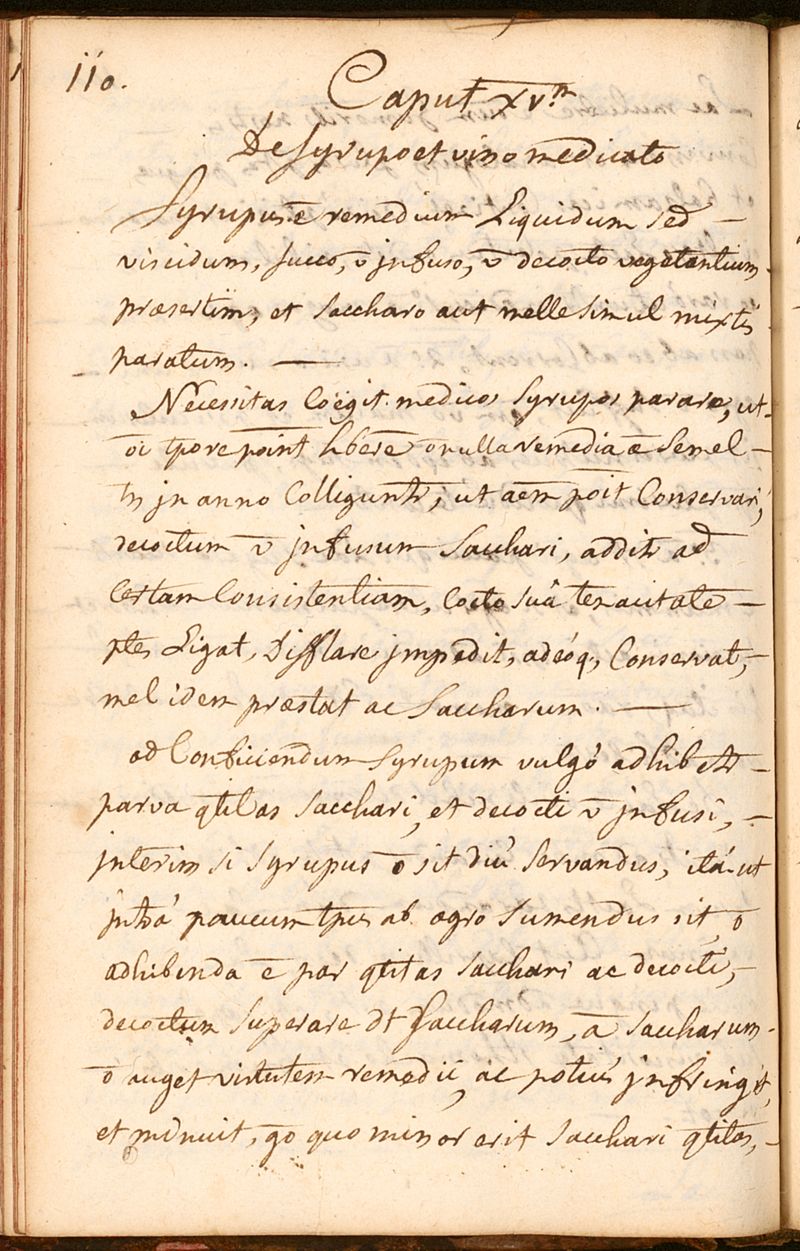 110.
Caput XVm
De Syrupo et vino medicato
Syrupus ē remedium Liquidum sed —
viscidum, succo, v̄ jnfuso, v̄ decocto vegetantium
præsertim, et saccharo aut melle simul mixtis
paratum. —
Necessitas Coëgit medicos syrupos parare, ut
oi tpore point hbere ōnulla remedia ā semel —
tm jn anno Colliguntr; ut aem poit Conservari,
decoctum v̄ jnfusum sacchari, additr ad
Certam Consistentiam, Cocto suâ tenacitate —
ptes Ligat, Difflare jmpedit, adeóq, Conservat, —
mel idem præstat ac Saccharum. —
ad Conficiendum Syrupum vulgó adhibetr —
parva qtitas sacchari, et decocti v̄ jnfusi, —
jnterim si syrupus ō sit diú servandus, itá ut
jntrá paucum tpus ab ægro sumendus sit, ō
adhibenda ē par qtitas sacchari ac decocti, —
decoctum superare dt saccharum, ā saccharum
ō auget virtutem remedii, ac potiús jnfringit,
et minuit, go quo minor erit sacchari qtitas, —